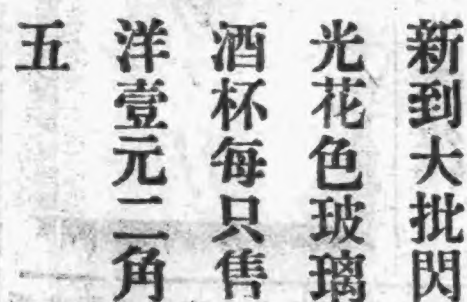 新到大批閃
光花色玻璃
酒杯每只售
洋壹元二角
五